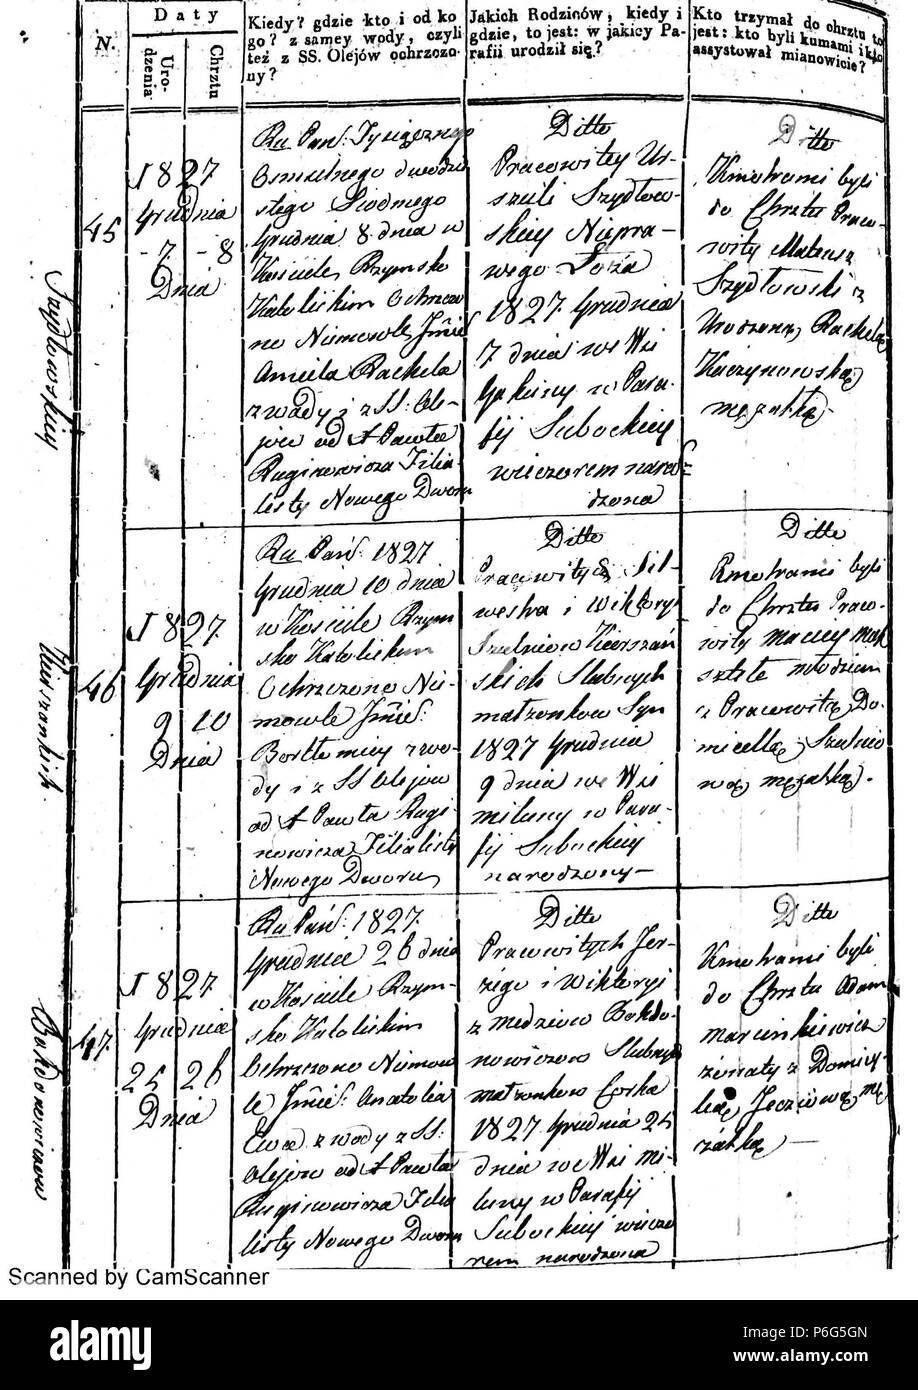 N.
Daty
Uro-
dzenia
Chrztu
Kiedy? gdzie kto i od ko
go? z samey wody, czyli
też z SS. Olejów ochrzczo-
ny?
Jakich Rodziców, kiedy i
gdzie, to jest: w jakicy Pa-
rafii urodził się?
Kto trzymał do chrztu to
jest: kto byli kumami i kto
assystował mianowicie?
Szydłowskiey
45
1827
Grudnia
7 - 8
Dnia
Ru Pań: Tysiącznego
Osmsetnego dwodzie
stego Siodmego
Grudnia 8 dnia w
Kościele Rzymsko
Katolickim Ochrzczo
no Niemowle Jmie
Aniela Rachela
z wody i z SS: Ole-
jow od X Pawła
Ruginowicza Filia-
listy Nowego Dworu
Ditto
Pracowitey Ur-
szuli Szydłow-
skiey Niepra-
wego Łoża
1827 Grudnia
7 dnia we Wsi
w Para-
fij Subockiey
wieczorem naro-
dzona
Ditto
Kmotrami byli
do Chrztu Praco-
wity Mateusz
Szydłowski z
Urodzoną Rachelą
Kaczynowską
mężatką
Kierzankich
46
1827
Grudnia
9 10
Dnia
Ru Pań: 1827
Grudnia 10 dnia
w Kościele Rzym
sko Katolickim
Ochrzczono Nie-
mowle Jmie:
Bartłomiey z wo-
dy i z SS Olejow
od X Pawła Rugi-
nowicza Filialisty
Nowego Dworu
Ditto
Pracowitych Sil-
westra i Wiktoryi
Kierzań
skich Slubnych
małżonkow Syn
1827 Grudnia
9 dnia we Wsi
Miluny w Para-
fij Subockiey
narodzony
Ditto
Kmotrami byli
do Chrztu Praco-
wity Maciey
młodzian
z Pracowitą Do-
micellą
mężatką.
Bohdanowiczow
47.
1827
Grudnia
25 26
Dnia
Ru Pań: 1827
Grudnia 26 dnia
w Kościele Rzym-
sko Katolickim
Ochrzczono Niemow
le Jmie: Anatolia
Ewa z wody z SS:
Olejow od X Pawła
Ruginowicza Filia
listy Nowego Dworu
Ditto
Pracowitych Jer-
zego i Wiktoryi
z Bohda-
nowiczow Slubnych
małżonkow Corka
1827 Grudnia 25
dnia we Wsi Mi-
luny w Parafij
Subockiey wieczo
rem narodzona
Ditto
Kmotrami byli
do Chrztu Adam
Marcinkiewicz
żonaty z Domicy-
lią mę
żatką
Scanned by CamScanner
alamy
Image ID: P6G5GN
www.alamy.com